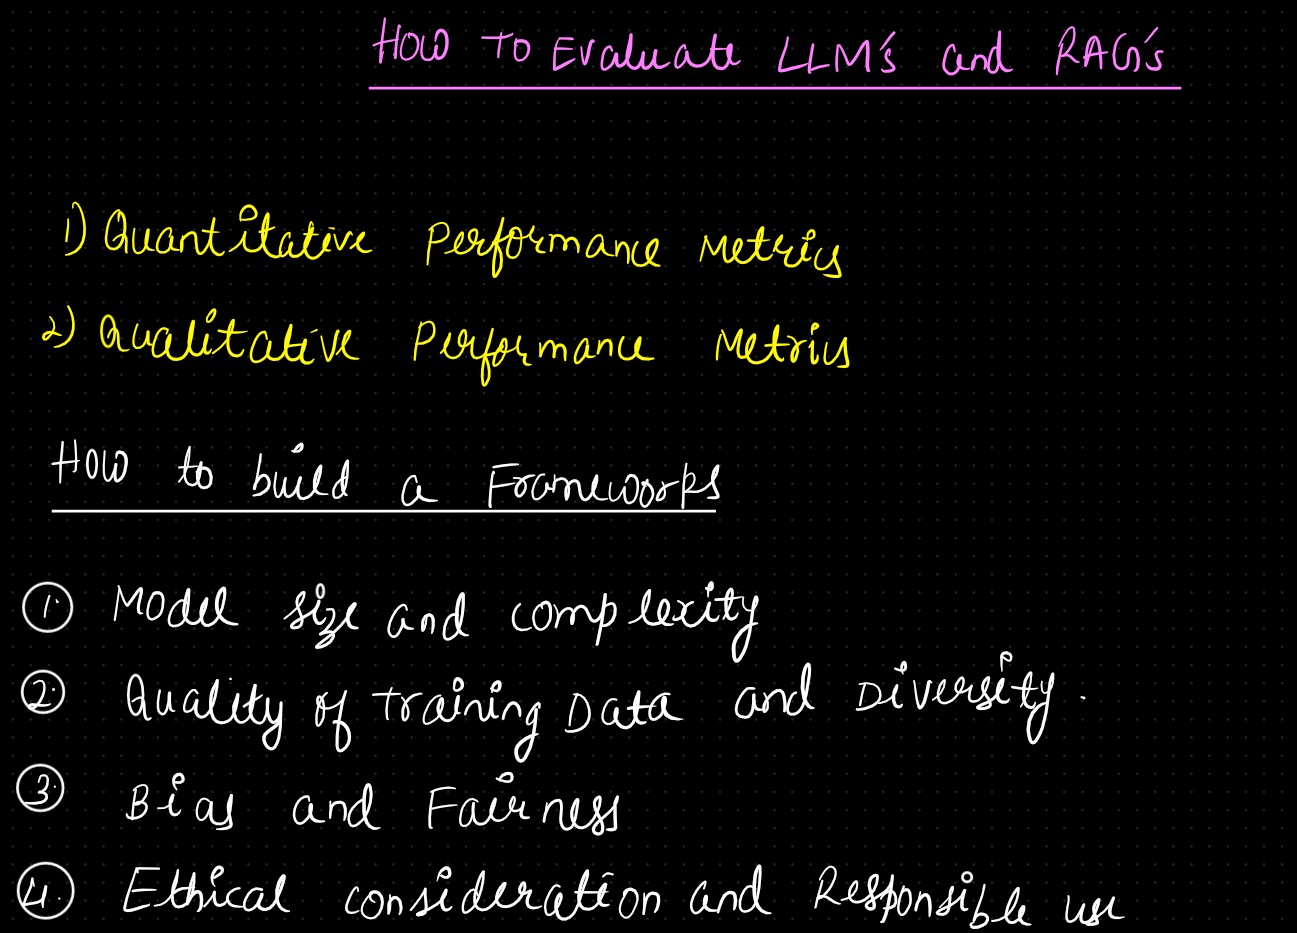 How To Evaluate LLM's and RAG's
1) Quantitative Performance Metrics
2) Qualitative Performance Metrics
How to build a Frameworks
1. Model size and complexity
2. Quality of Training Data and Diversity.
3. Bias and Fairness
4. Ethical consideration and Responsible use